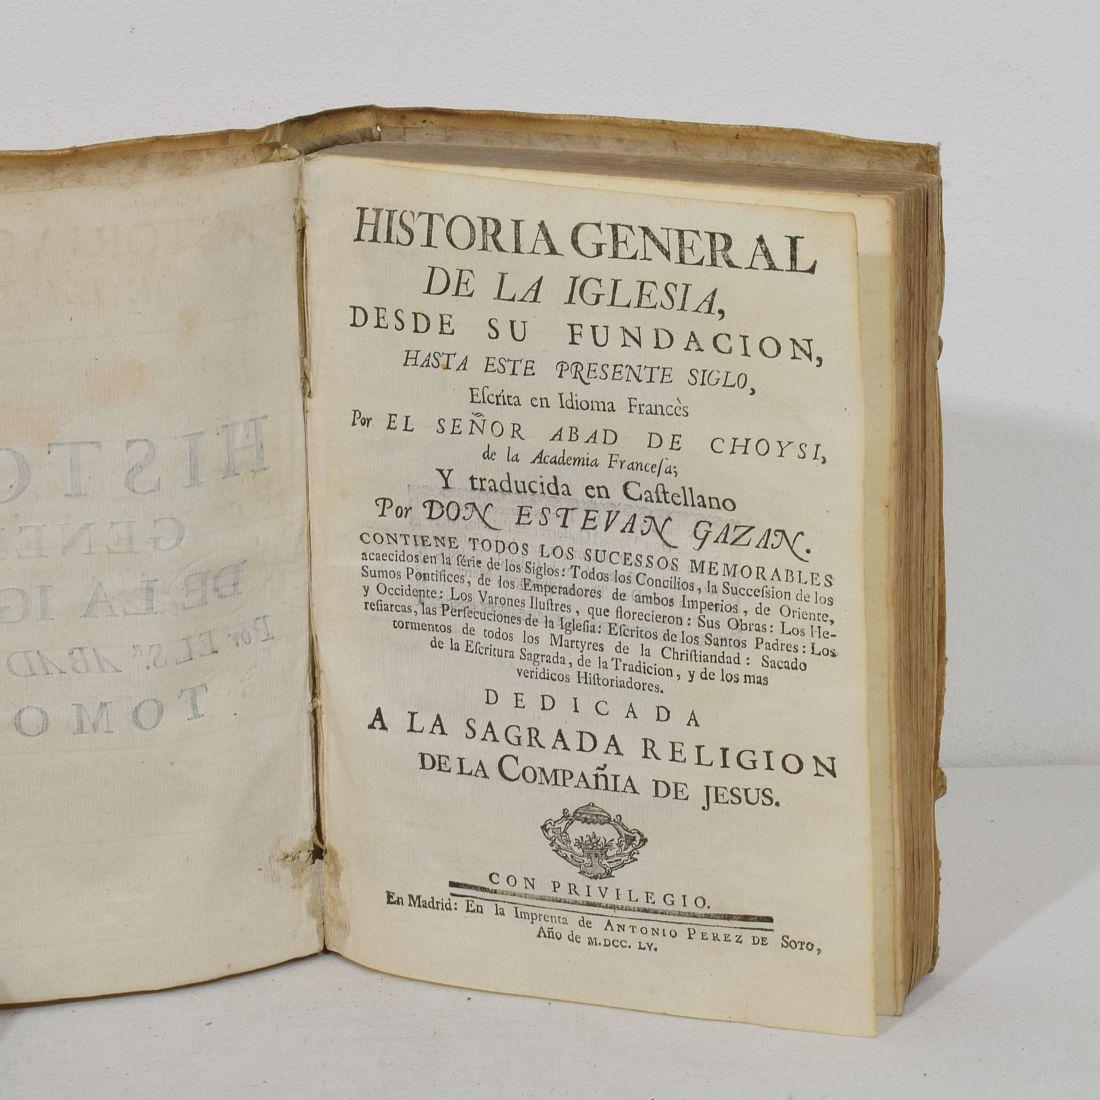 HISTORIA GENERAL
DE LA IGLESIA,
DESDE SU FUNDACION,
HASTA ESTE PRESENTE SIGLO,
Eſcrita en Idioma Francès
Por EL SEÑOR ABAD DE CHOYSI,
de la Academia Franceſa;
Y traducida en Caſtellano
Por DON ESTEVAN GAZAN.
CONTIENE TODOS LOS SUCESSOS MEMORABLES
acaecidos en la ſérie de los Siglos: Todos los Concilios, la Succeſsion de los
Sumos Pontifices, de los Emperadores de ambos Imperios, de Oriente,
y Occidente: Los Varones Iluſtres, que florecieron: Sus Obras: Los He-
reſiarcas, las Perſecuciones de la Igleſia: Eſcritos de los Santos Padres: Los
tormentos de todos los Martyres de la Chriſtiandad: Sacado
de la Eſcritura Sagrada, de la Tradicion, y de los mas
veridicos Hiſtoriadores.
DEDICADA
A LA SAGRADA RELIGION
DE LA COMPAñIA DE JESUS.
CON PRIVILEGIO.
En Madrid: En la Imprenta de ANTONIO PEREZ DE SOTO,
Año de M.DCC. LV.
HISTO
GENE
DE LA IG
Por EL S.r ABAD
TOMO